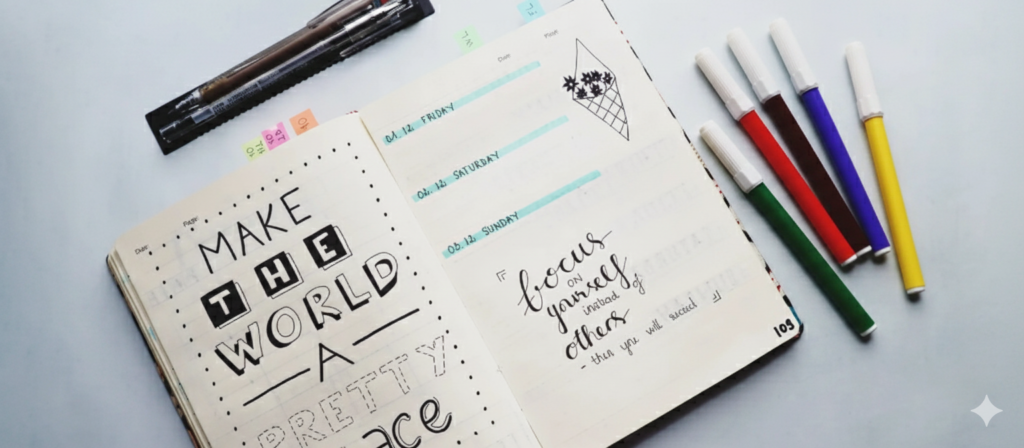 Date:
Page:
MAKE
THE
WORLD
A
PRETTY
ace
Date:
Page:
01. 12. FRIDAY
02. 12. SATURDAY
03. 12. SUNDAY
focus
on
yourself
instead of
others
- then you will succeed
105